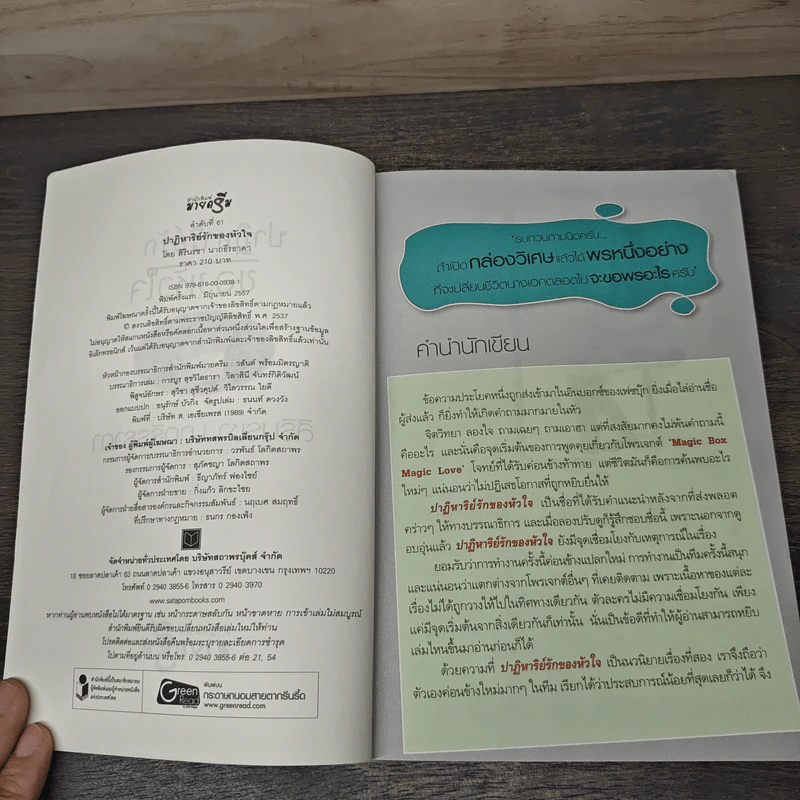 สำนักพิมพ์
มายดรีม
ลำดับที่ 61
ปาฏิหาริย์รักของหัวใจ
โดย สิรินรชา นาถธีรธาดา
ราคา 210 บาท
ISBN 978-616-00-0938-1
พิมพ์ครั้งแรก : มิถุนายน 2557
พิมพ์โฆษณาครั้งนี้ได้รับอนุญาตจากเจ้าของลิขสิทธิ์ตามกฎหมายแล้ว
© สงวนลิขสิทธิ์ตามพระราชบัญญัติลิขสิทธิ์ พ.ศ. 2537
ไม่อนุญาตให้สแกนหนังสือหรือคัดลอกเนื้อหาส่วนหนึ่งส่วนใดเพื่อสร้างฐานข้อมูล
อิเล็กทรอนิกส์ เว้นแต่ได้รับอนุญาตจากสำนักพิมพ์และเจ้าของลิขสิทธิ์แล้วเท่านั้น
หัวหน้ากองบรรณาธิการสำนักพิมพ์มายดรีม : วสันต์ พร้อมมิตรญาติ
บรรณาธิการเล่ม : การบูร สุขวิไลธารา วิลาสินี จันทร์กิติวัฒน์
พิสูจน์อักษร : สุวิชา สุชีวคุปต์ วิไลวรรณ ไยดี
ออกแบบปก : อนุรักษ์ บัวกิ่ง จัดรูปเล่ม : ธนนต์ ดวงวัง
พิมพ์ที่ : บริษัท ส. เอเชียเพรส (1989) จำกัด
เจ้าของ ผู้พิมพ์ผู้โฆษณา : บริษัทสตรบิลเลี่ยนกรุ๊ป จำกัด
กรรมการผู้จัดการ/บรรณาธิการอำนวยการ : วรพันธ์ โลกิตสถาพร
รองกรรมการผู้จัดการ : สุภัคชญา โลกิตสถาพร
ผู้จัดการสำนักพิมพ์ : ธีญาภัทร์ ฟองไชย์
ผู้จัดการฝ่ายขาย : กิ่งแก้ว ลิกขะไชย
ผู้จัดการฝ่ายสื่อสารองค์กรและกิจกรรมสัมพันธ์ : นฤเบศ สมฤทธิ์
ที่ปรึกษาทางกฎหมาย : ธนกร กองเพ็ง
จัดจำหน่ายทั่วประเทศโดย บริษัทสถาพรบุ๊คส์ จำกัด
18 ซอยลาดปลาเค้า 63 ถนนลาดปลาเค้า แขวงอนุสาวรีย์ เขตบางเขน กรุงเทพฯ 10220
โทรศัพท์ 0 2940 3855-6 โทรสาร 0 2940 3970
www.satapornbooks.com
หากท่านผู้อ่านพบหนังสือไม่ได้มาตรฐาน เช่น หน้ากระดาษสลับกัน หน้าขาดหาย การเข้าเล่มไม่สมบูรณ์
สำนักพิมพ์ยินดีรับผิดชอบเปลี่ยนหนังสือเล่มใหม่ให้ท่าน
โปรดติดต่อและส่งหนังสือคืนพร้อมระบุรายละเอียดการชำรุด
ไปตามที่อยู่ด้านบน หรือโทร. 0 2940 3855-6 ต่อ 21, 54
สำนักพิมพ์นี้เป็นสมาชิกสมาคม
ผู้จัดพิมพ์และผู้จำหน่ายหนังสือ
แห่งประเทศไทย
Green
Read
พิมพ์บน
กระดาษถนอมสายตากรีนรี้ด
www.greenread.com
'รบกวนถามนิดครับ...
ถ้าเปิด กล่องวิเศษ แล้วได้ พรหนึ่งอย่าง
ที่จะเปลี่ยนชีวิตนางเอกตลอดไป จะขอพรอะไร ครับ'
คำนำนักเขียน
ข้อความประโยคหนึ่งถูกส่งเข้ามาในอินบอกซ์ของเฟซบุ๊ก ยิ่งเมื่อไล่อ่านชื่อ
ผู้ส่งแล้ว ก็ยิ่งทำให้เกิดคำถามมากมายในหัว
จิตวิทยา ลองใจ ถามเฉยๆ ถามเอาฮา แต่ที่สงสัยมากคงไม่พ้นคำถามนี้
คืออะไร และนั่นคือจุดเริ่มต้นของการพูดคุยเกี่ยวกับโพรเจกต์ 'Magic Box
Magic Love' โจทย์ที่ได้รับค่อนข้างท้าทาย แต่ชีวิตมันก็คือการค้นพบอะไร
ใหม่ๆ แน่นอนว่าไม่ปฏิเสธโอกาสที่ถูกหยิบยื่นให้
ปาฏิหาริย์รักของหัวใจ เป็นชื่อที่ได้รับคำแนะนำหลังจากที่ส่งพลอต
คร่าวๆ ให้ทางบรรณาธิการ และเมื่อลองปรับดูก็รู้สึกชอบชื่อนี้ เพราะนอกจากดู
อบอุ่นแล้ว ปาฏิหาริย์รักของหัวใจ ยังมีจุดเชื่อมโยงกับเหตุการณ์ในเรื่อง
ยอมรับว่าการทำงานครั้งนี้ค่อนข้างแปลกใหม่ การทำงานเป็นทีมครั้งนี้สนุก
และแน่นอนว่าแตกต่างจากโพรเจกต์อื่นๆ ที่เคยติดตาม เพราะเนื้อหาของแต่ละ
เรื่องไม่ได้ถูกวางให้ไปในทิศทางเดียวกัน ตัวละครไม่มีความเชื่อมโยงกัน เพียง
แค่มีจุดเริ่มต้นจากสิ่งเดียวกันก็เท่านั้น นั่นเป็นข้อดีที่ทำให้ผู้อ่านสามารถหยิบ
เล่มไหนขึ้นมาอ่านก่อนก็ได้
ด้วยความที่ ปาฏิหาริย์รักของหัวใจ เป็นนวนิยายเรื่องที่สอง เราจึงถือว่า
ตัวเองค่อนข้างใหม่มากๆ ในทีม เรียกได้ว่าประสบการณ์น้อยที่สุดเลยก็ว่าได้ จึง